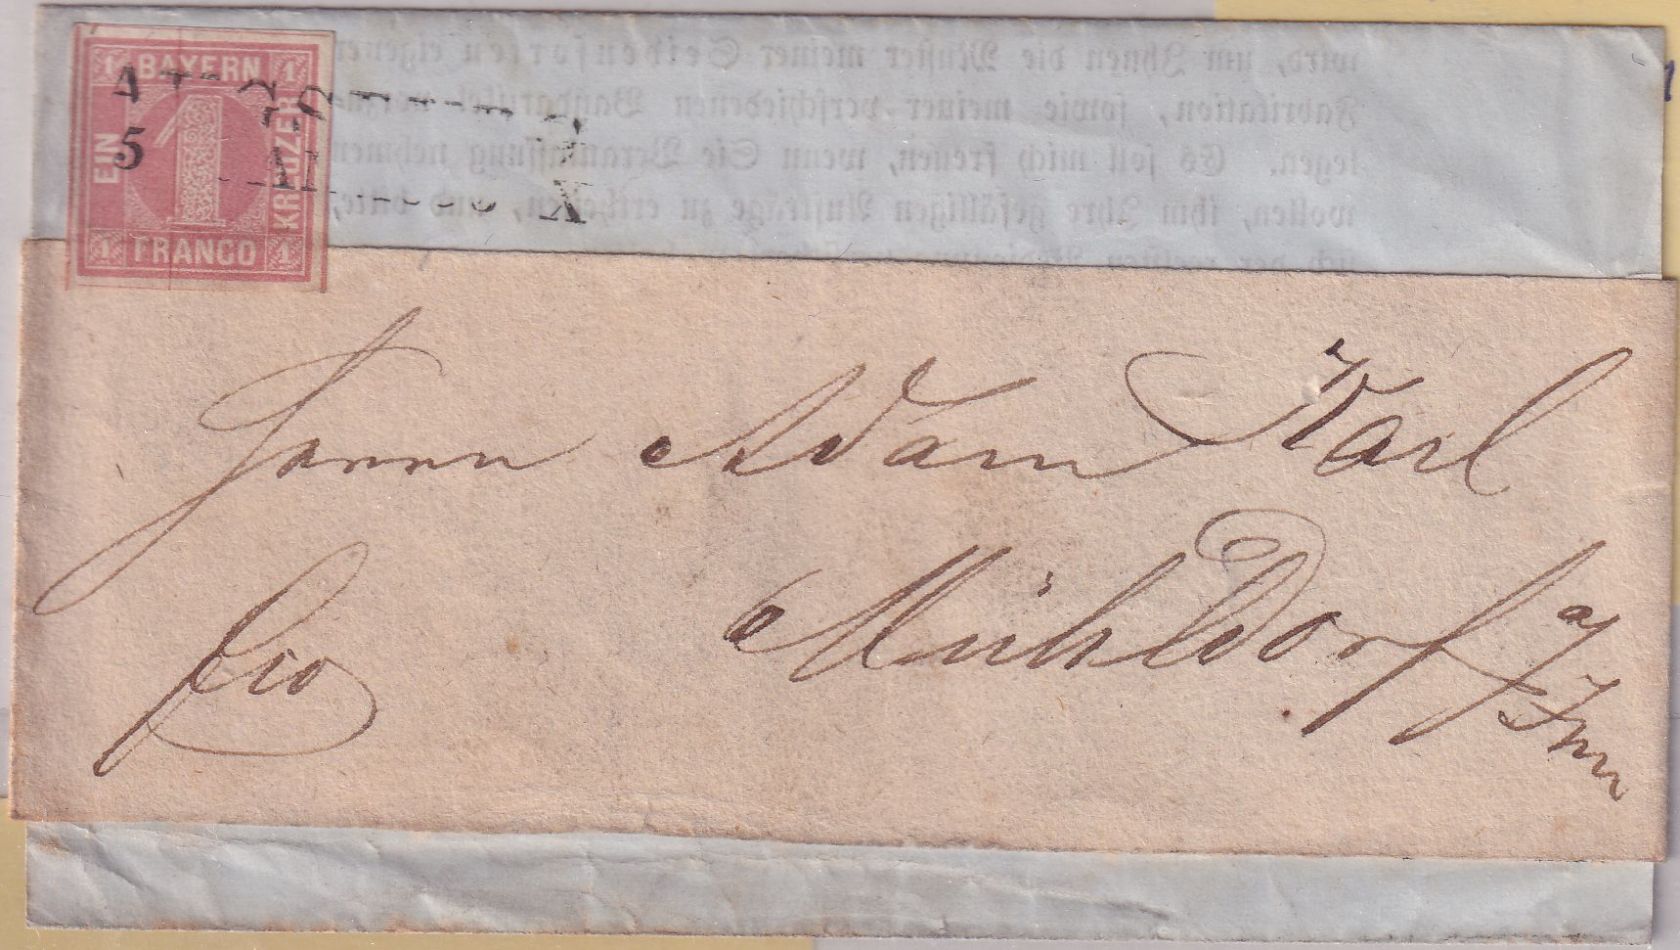 1 BAYERN 1
EIN
1
KREUZER
1 FRANCO 1
5
wird, um Ihnen die Muster meiner Seidensorten eigener
Fabrikation, sowie meiner verschiedenen
legen. Es soll mich freuen, wenn Sie Veranlassung nehmen
wollen, ihm Ihre gefälligen Aufträge zu ertheilen,
Herrn Adam Karl
Mühldorf a/Inn
fco